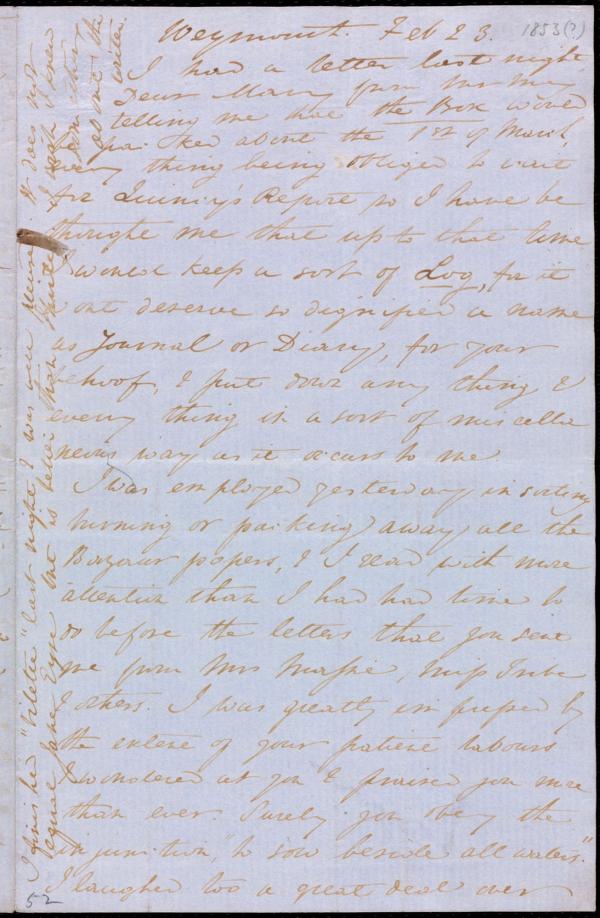 Weymouth. Feb 23. 1853(?)
I had a letter last night,
Dear Mary from Mrs May
telling me that the Box would
be packed about the 1st of March,
every thing being obliged to wait
for Quincy's Report so I have be
thought me that up to that time
I would keep a sort of Log, for it
wont deserve so dignified a name
as Journal or Diary, for your
behoof, & put down any thing &
every thing in a sort of miscella
neous way as it occurs to me.
I was employed yesterday in sorting
burning or packing away all the
Bazaar papers, & I read with more
attention than I had had time to
do before the letters that you sent
me from Mrs Massie, Miss
& others. I was greatly impressed by
the extent of your patient labours
I wondered at you & praised you more
than ever. Surely you obey the
injunction, "to sow beside all waters."
I laughed too a great deal over
52
I finished "Villette" last night. I was up till It does not
equal Jane Eyre but is better than Shirley. I wish I knew
about the
writer